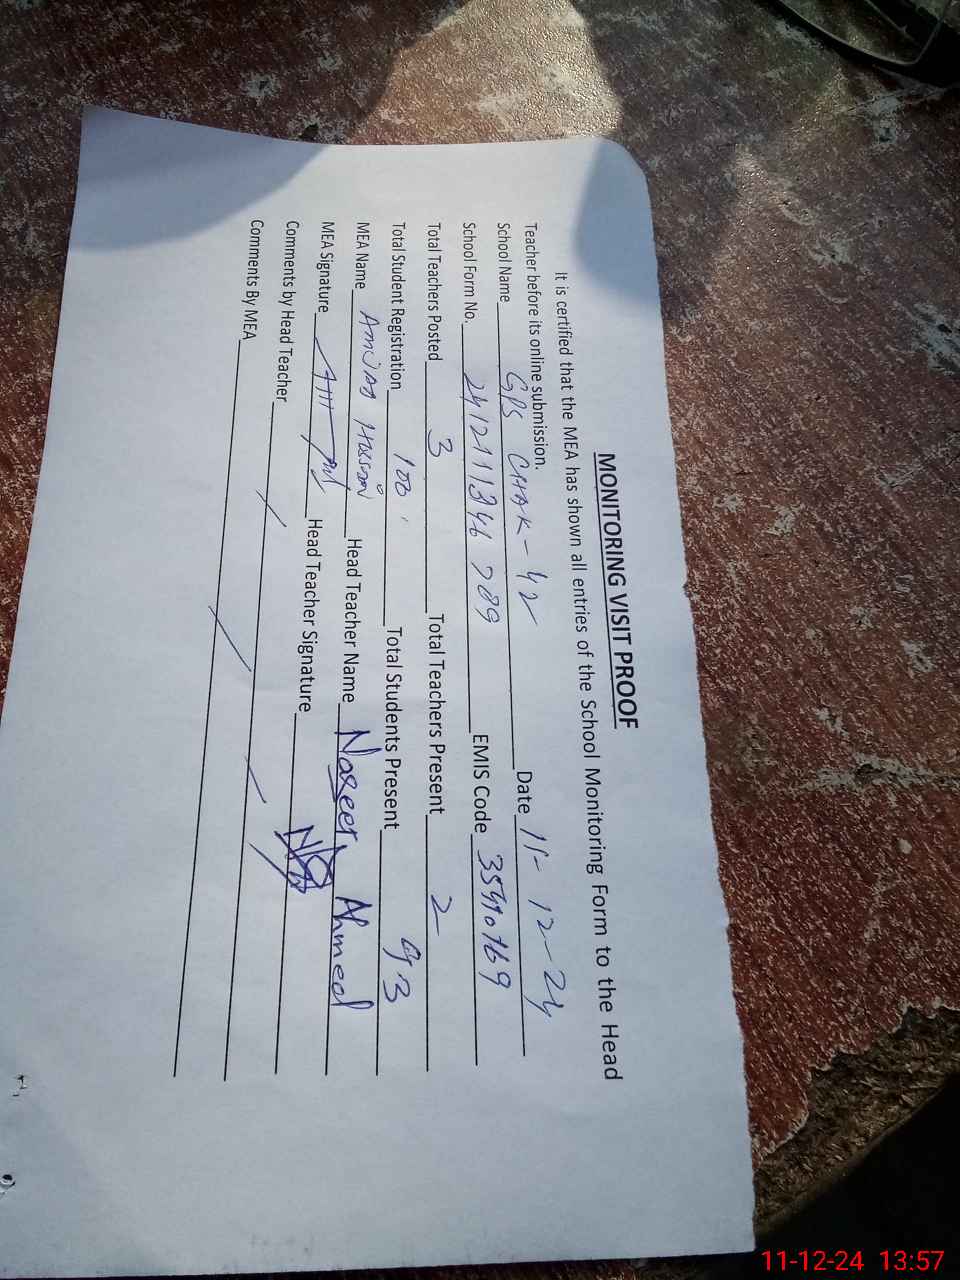 MONITORING VISIT PROOF
It is certified that the MEA has shown all entries of the School Monitoring Form to the Head
Teacher before its online submission.
School Name GPS CHAK-42 Date 11-12-24
School Form No. EMIS Code 35410769
Total Teachers Posted 3 Total Teachers Present 2
Total Student Registration 100 Total Students Present 93
MEA Name Amjad Hussain Head Teacher Name Naseer Ahmed
MEA Signature Head Teacher Signature
Comments by Head Teacher
Comments By MEA
11-12-24 13:57